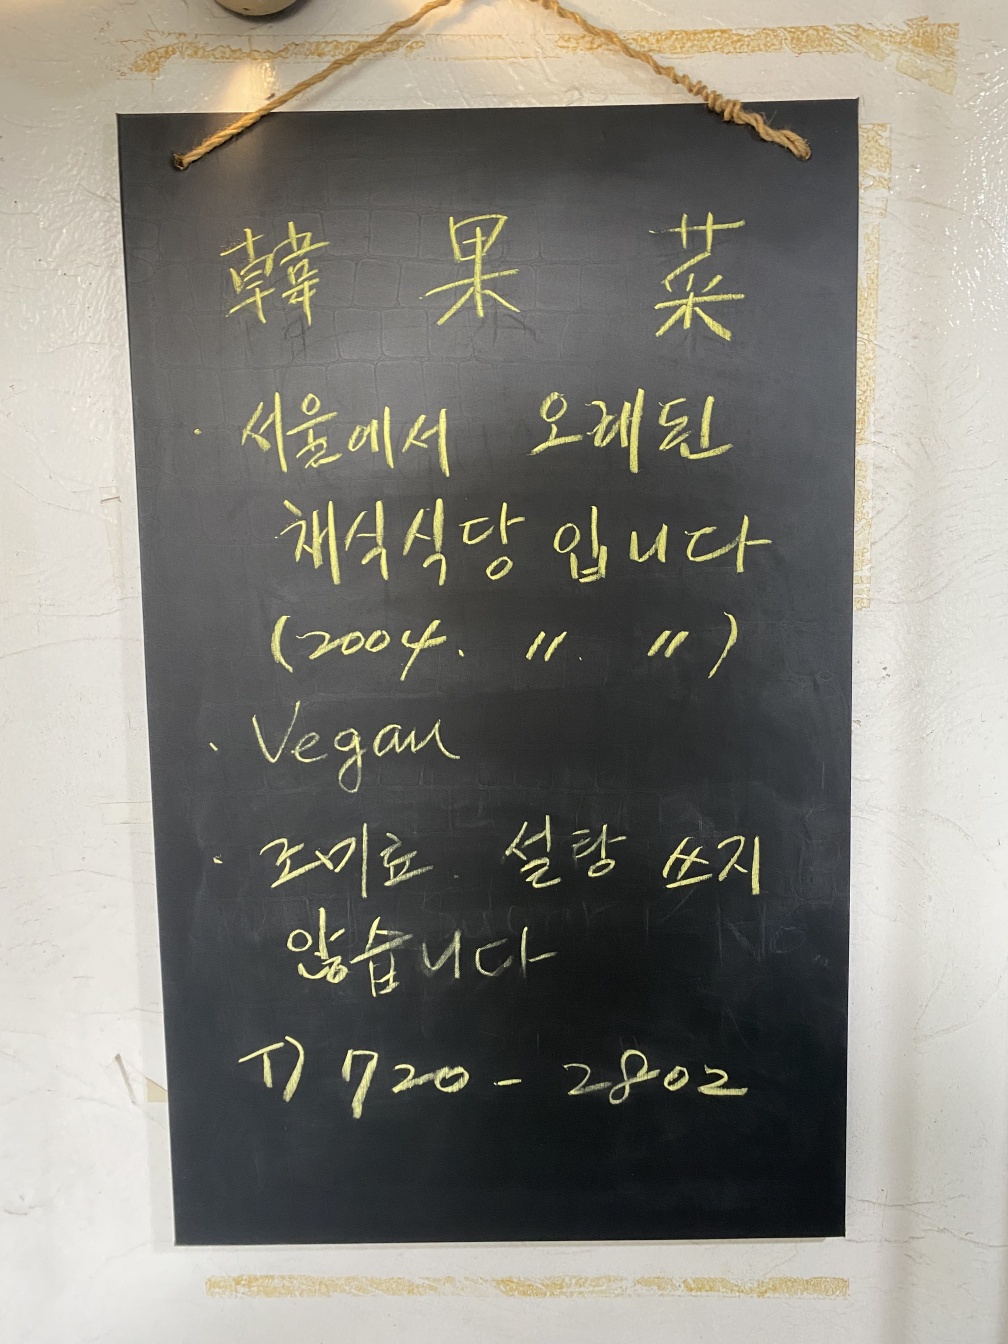 韓 果 菜
· 서울에서 오래된
채식식당 입니다
(2004.〃. 〃)
· Vegan
· 조미료. 설탕 쓰지
않습니다
T) 720-2802